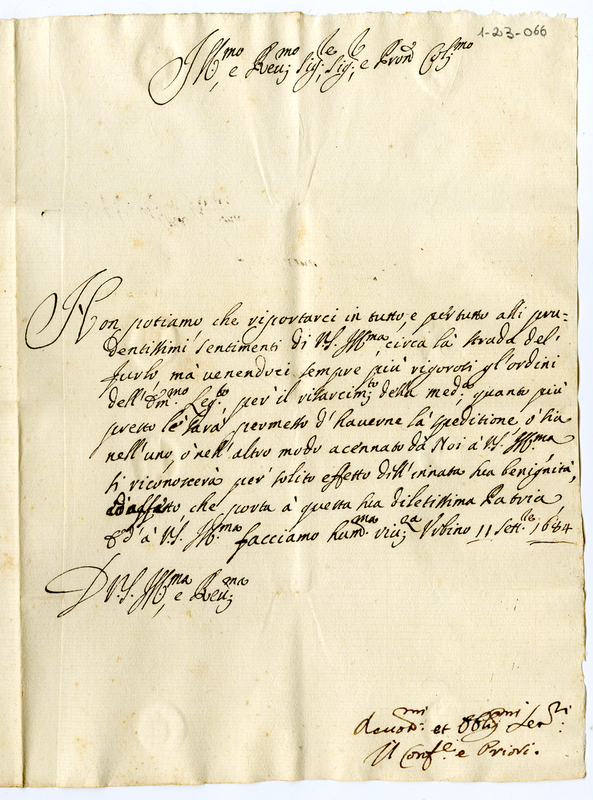 1-23-066
Ill.mo e Reu.mo Sig.le Sig.e e Pron Col.mo
Non potiamo che riportarci in tutto, e per tutto alli pru-
dentissimi sentimenti di V.S. Ill.ma, circa la strada del
furlo, mà uenendoci sempre più rigorosi gl'ordini
dell'Em.mo Leg.to, per il risarcim.to della med.a quanto più
presto le sarà permesso d'hauerne la speditione ò sia
nell'uno, ò nell'altro modo acennato dà Noi à V.S. Ill.ma
si riconoscerà per solito effetto dell'innata sua benignità,
ed affetto che porta à questa sua diletissima Patria
& à V.S. Ill.ma facciamo hum.ma riu.za Vrbino 11 Sett.re 1684
D V.S. Ill.ma, e Reu.ma
Deuot.mi et Obblig.mi Ser.ri
Il Conf.e e Priori.